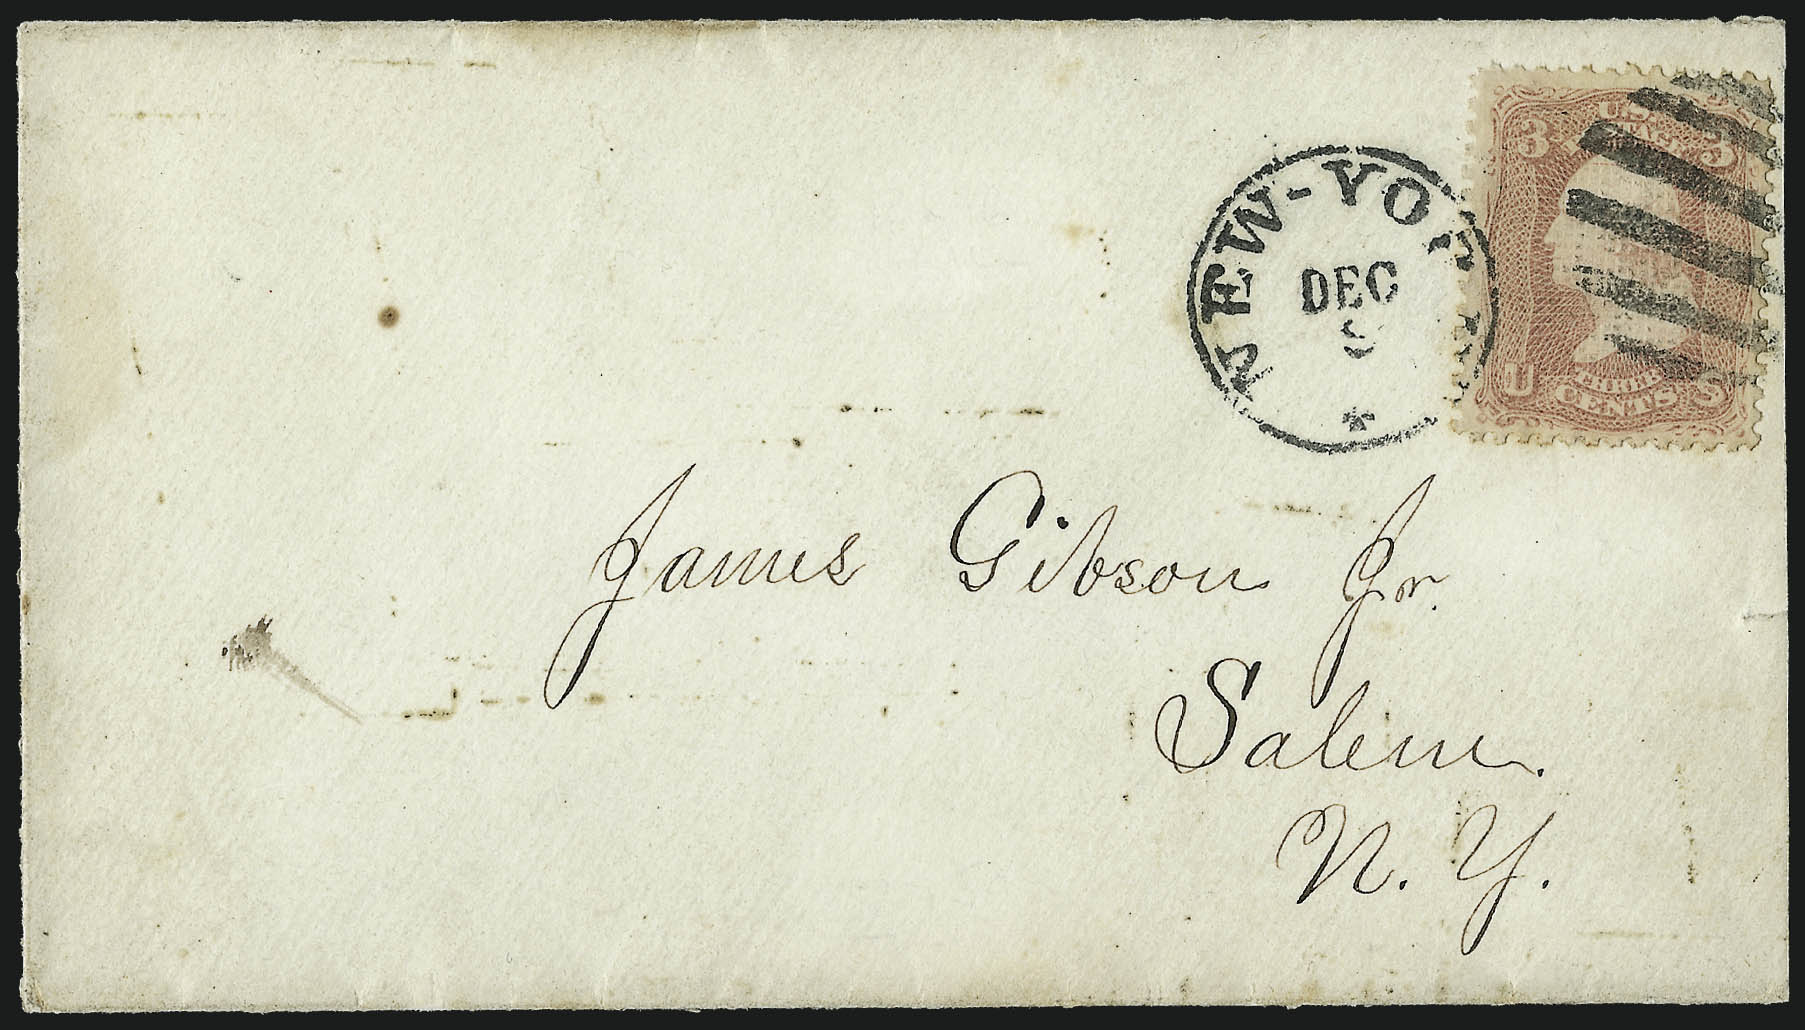 NEW-YORK
DEC
*
3 U.S. POSTAGE 3
U THREE S
CENTS
James Gibson Jr.
Salem.
N. Y.